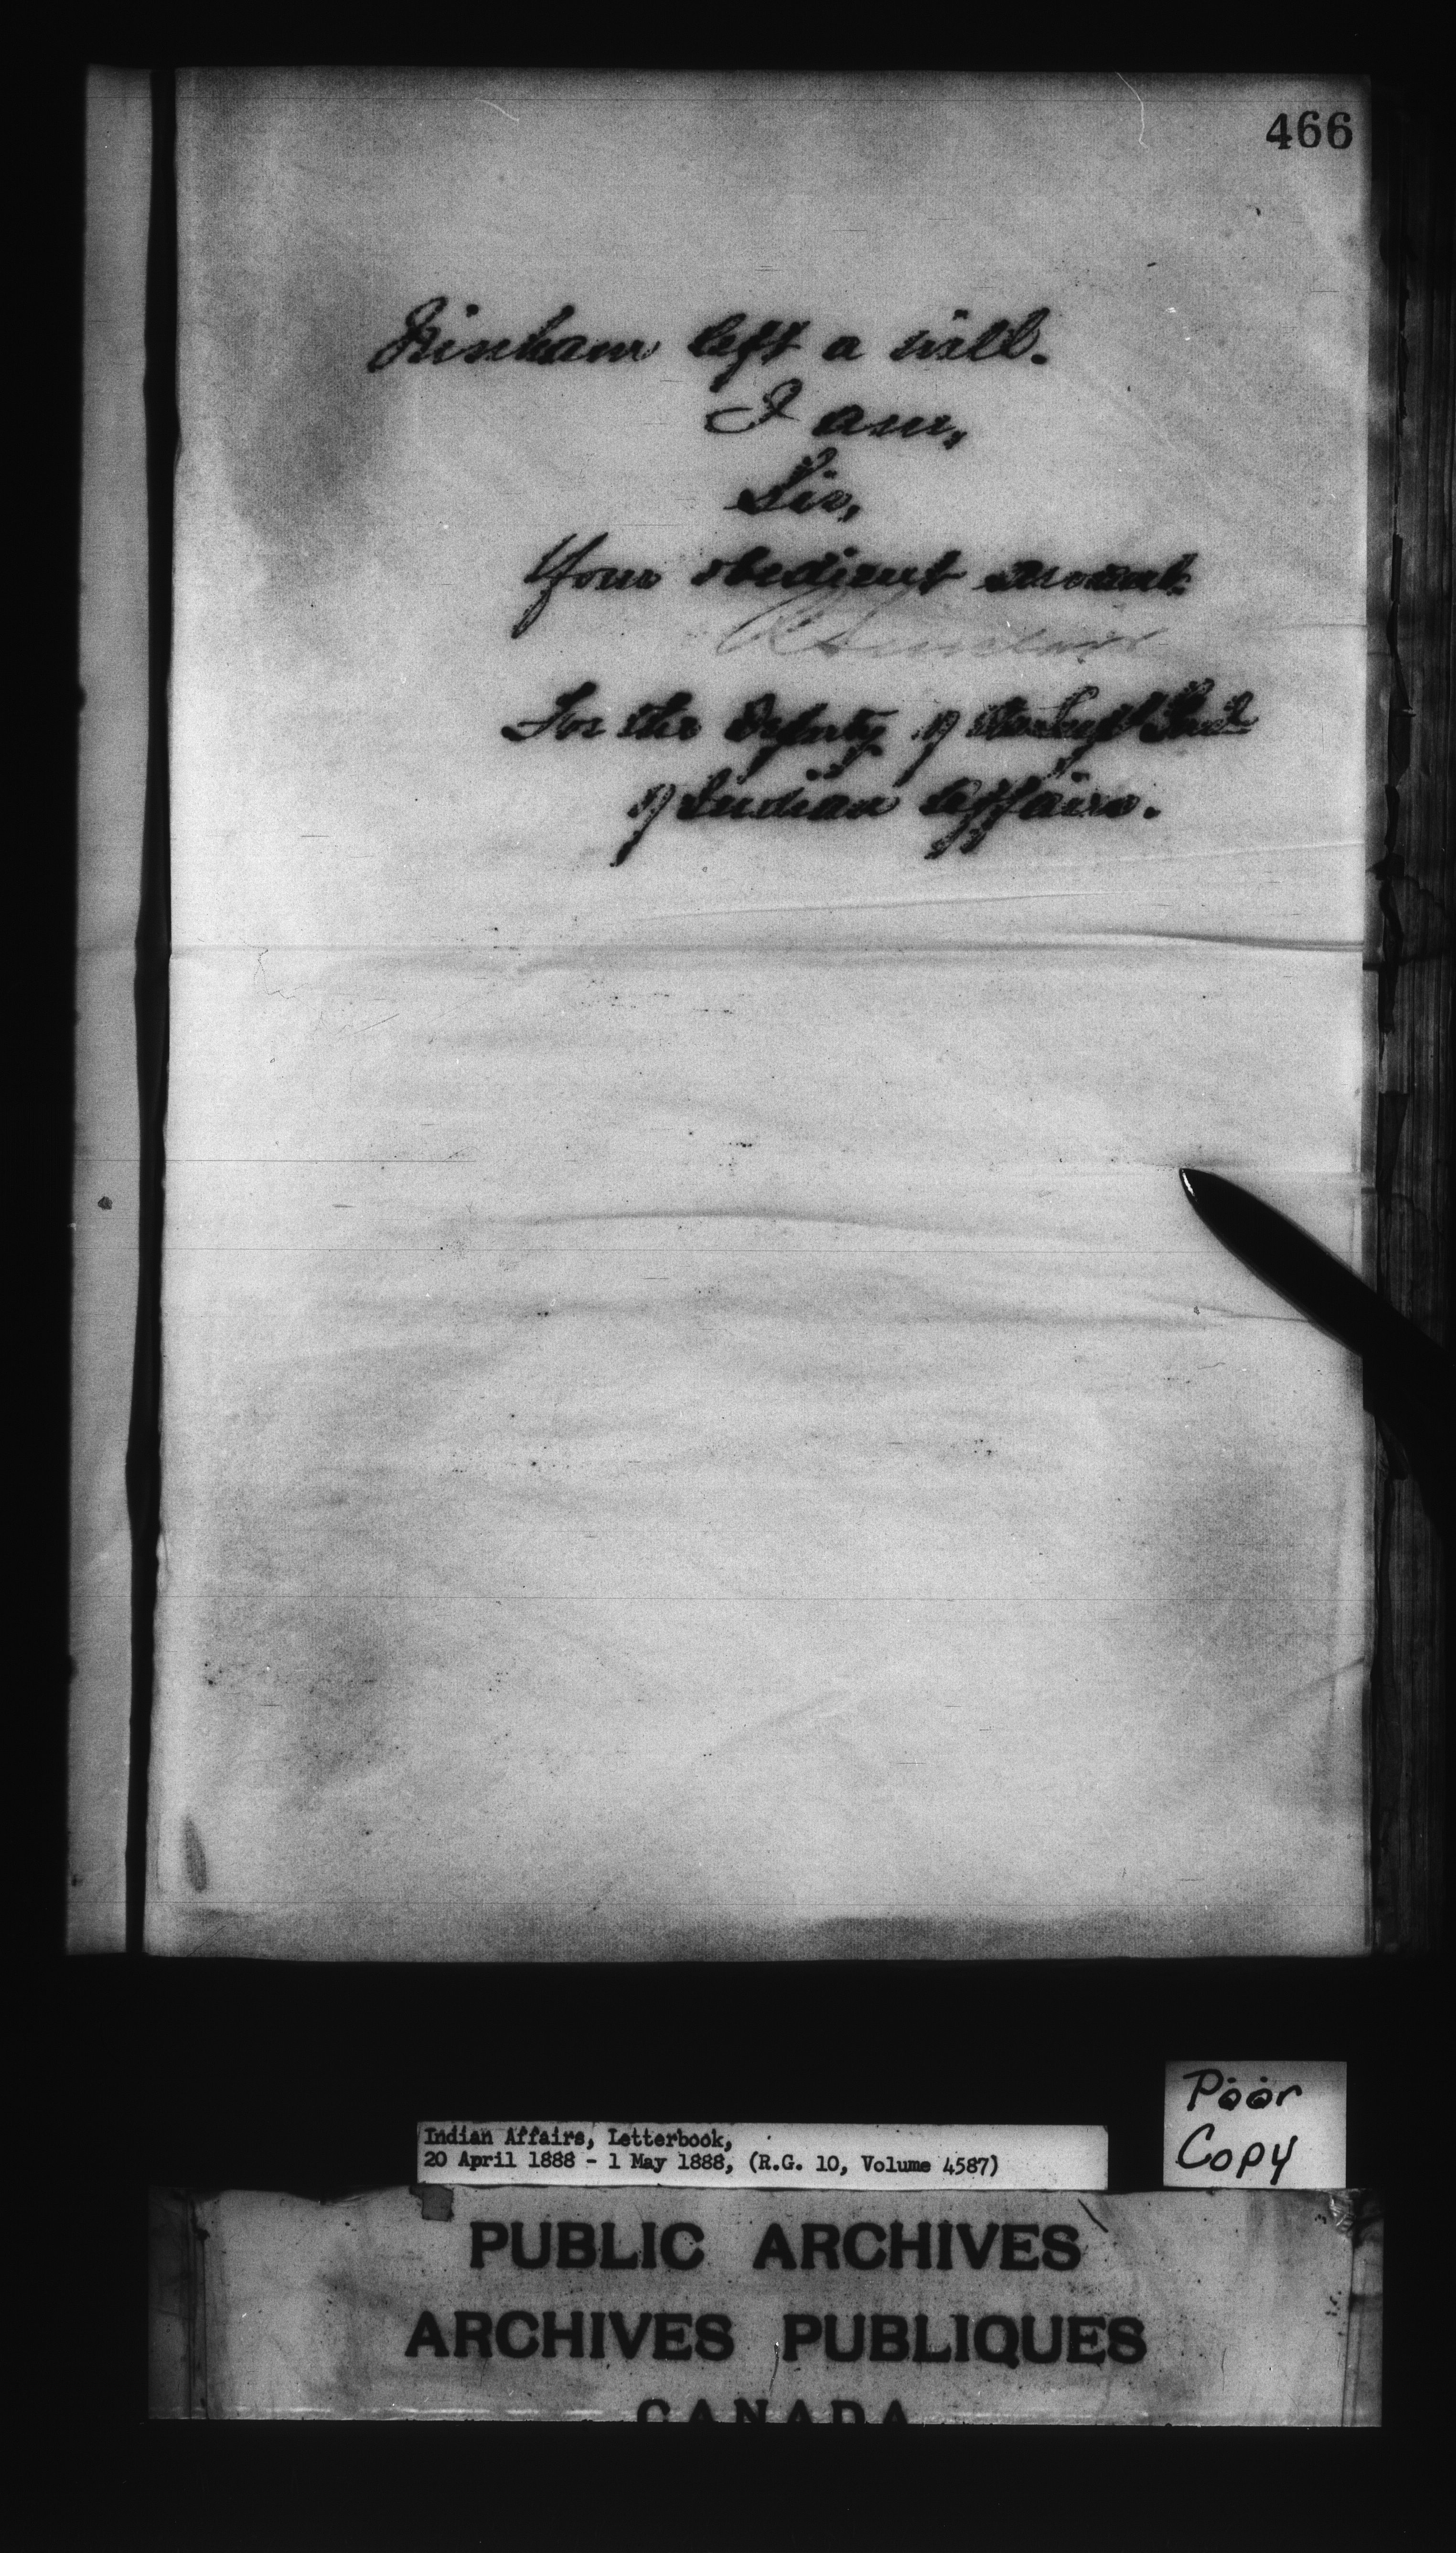 466
left a will.
I am,
Sir,
Your obedient servant.
R Sinclair
For the Deputy of the Supt Genl
of Indian Affairs.
Poor
Copy
Indian Affairs, Letterbook,
20 April 1888 - 1 May 1888, (R.G. 10, Volume 4587)
PUBLIC ARCHIVES
ARCHIVES PUBLIQUES
CANADA